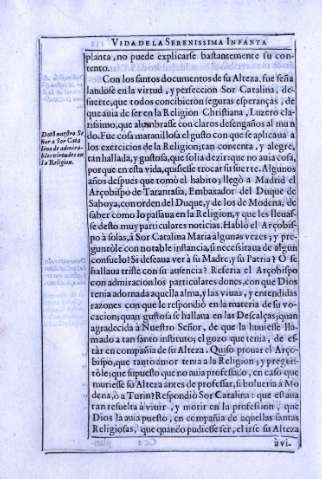 VIDA DE LA SERENISSIMA INFANTA
planta, no puede explicarse bastantemente su con-
tento.
Con los santos documentos de su Alteza, fue seña
landose en la virtud, y perfeccion Sor Catalina, de-
suerte, que todos concibieron seguras esperanças, de
que auia de ser en la Religion Christiana, Luzero cla-
rissimo, que alumbrasse con claros desengaños al mun
do. Fue cosa marauillosa el gusto con que se aplicaua a
los exercicios de la Religion; tan contenta, y alegre,
tan hallada, y gustosa, que solia dezir que no auia cosa,
porque en esta vida, quisiesse trocar su suerte. Algunos
años despues que tomò el habito, llegò a Madrid el
Arçobispo de Tarantasia, Embaxador del Duque de
Saboya, con orden del Duque, y de los de Modena, de
saber como lo passaua en la Religion, y que les lleuas-
se desto muy particulares noticias. Hablò el Arçobis-
po à solas, à Sor Catalina Maria algunas vezes; y pre-
guntòle con notable instancia, si necessitaua de algun
consuelo? Si desseaua ver à su Madre, y su Patria? O se
hallaua triste con su ausencia? Referia el Arçobispo
con admiracion los particulares dones, con que Dios
tenia adornada aquella alma, y las viuas, y entendidas
razones con que le respondiò en la materia de su vo-
cacion; quan gustosa se hallaua en las Descalças; quan
agradecida à Nuestro Señor, de que la huuiesse lla-
mado a tan santo instituto; el gozo que tenia, de es-
tàr en compañia de su Alteza. Quiso prouar el Arço-
bispo, que tanto amor tenia a la Religion; y pregun-
tòle; que supuesto que no auia professado, en caso que
muriesse su Alteza antes de professar, si bolueria à Mo
dena, ò a Turin? Respondiò Sor Catalina: que estaua
tan resuelta a viuir, y morir en la profession, que
Dios la auia puesto, en compañia de aquellas santas
Religiosas, que quando pudiesse ser, el irse su Alteza
à vi-
Dotò nuestro Se
ñor a Sor Cata
lina de admira-
bles virtudes en
la Religion.